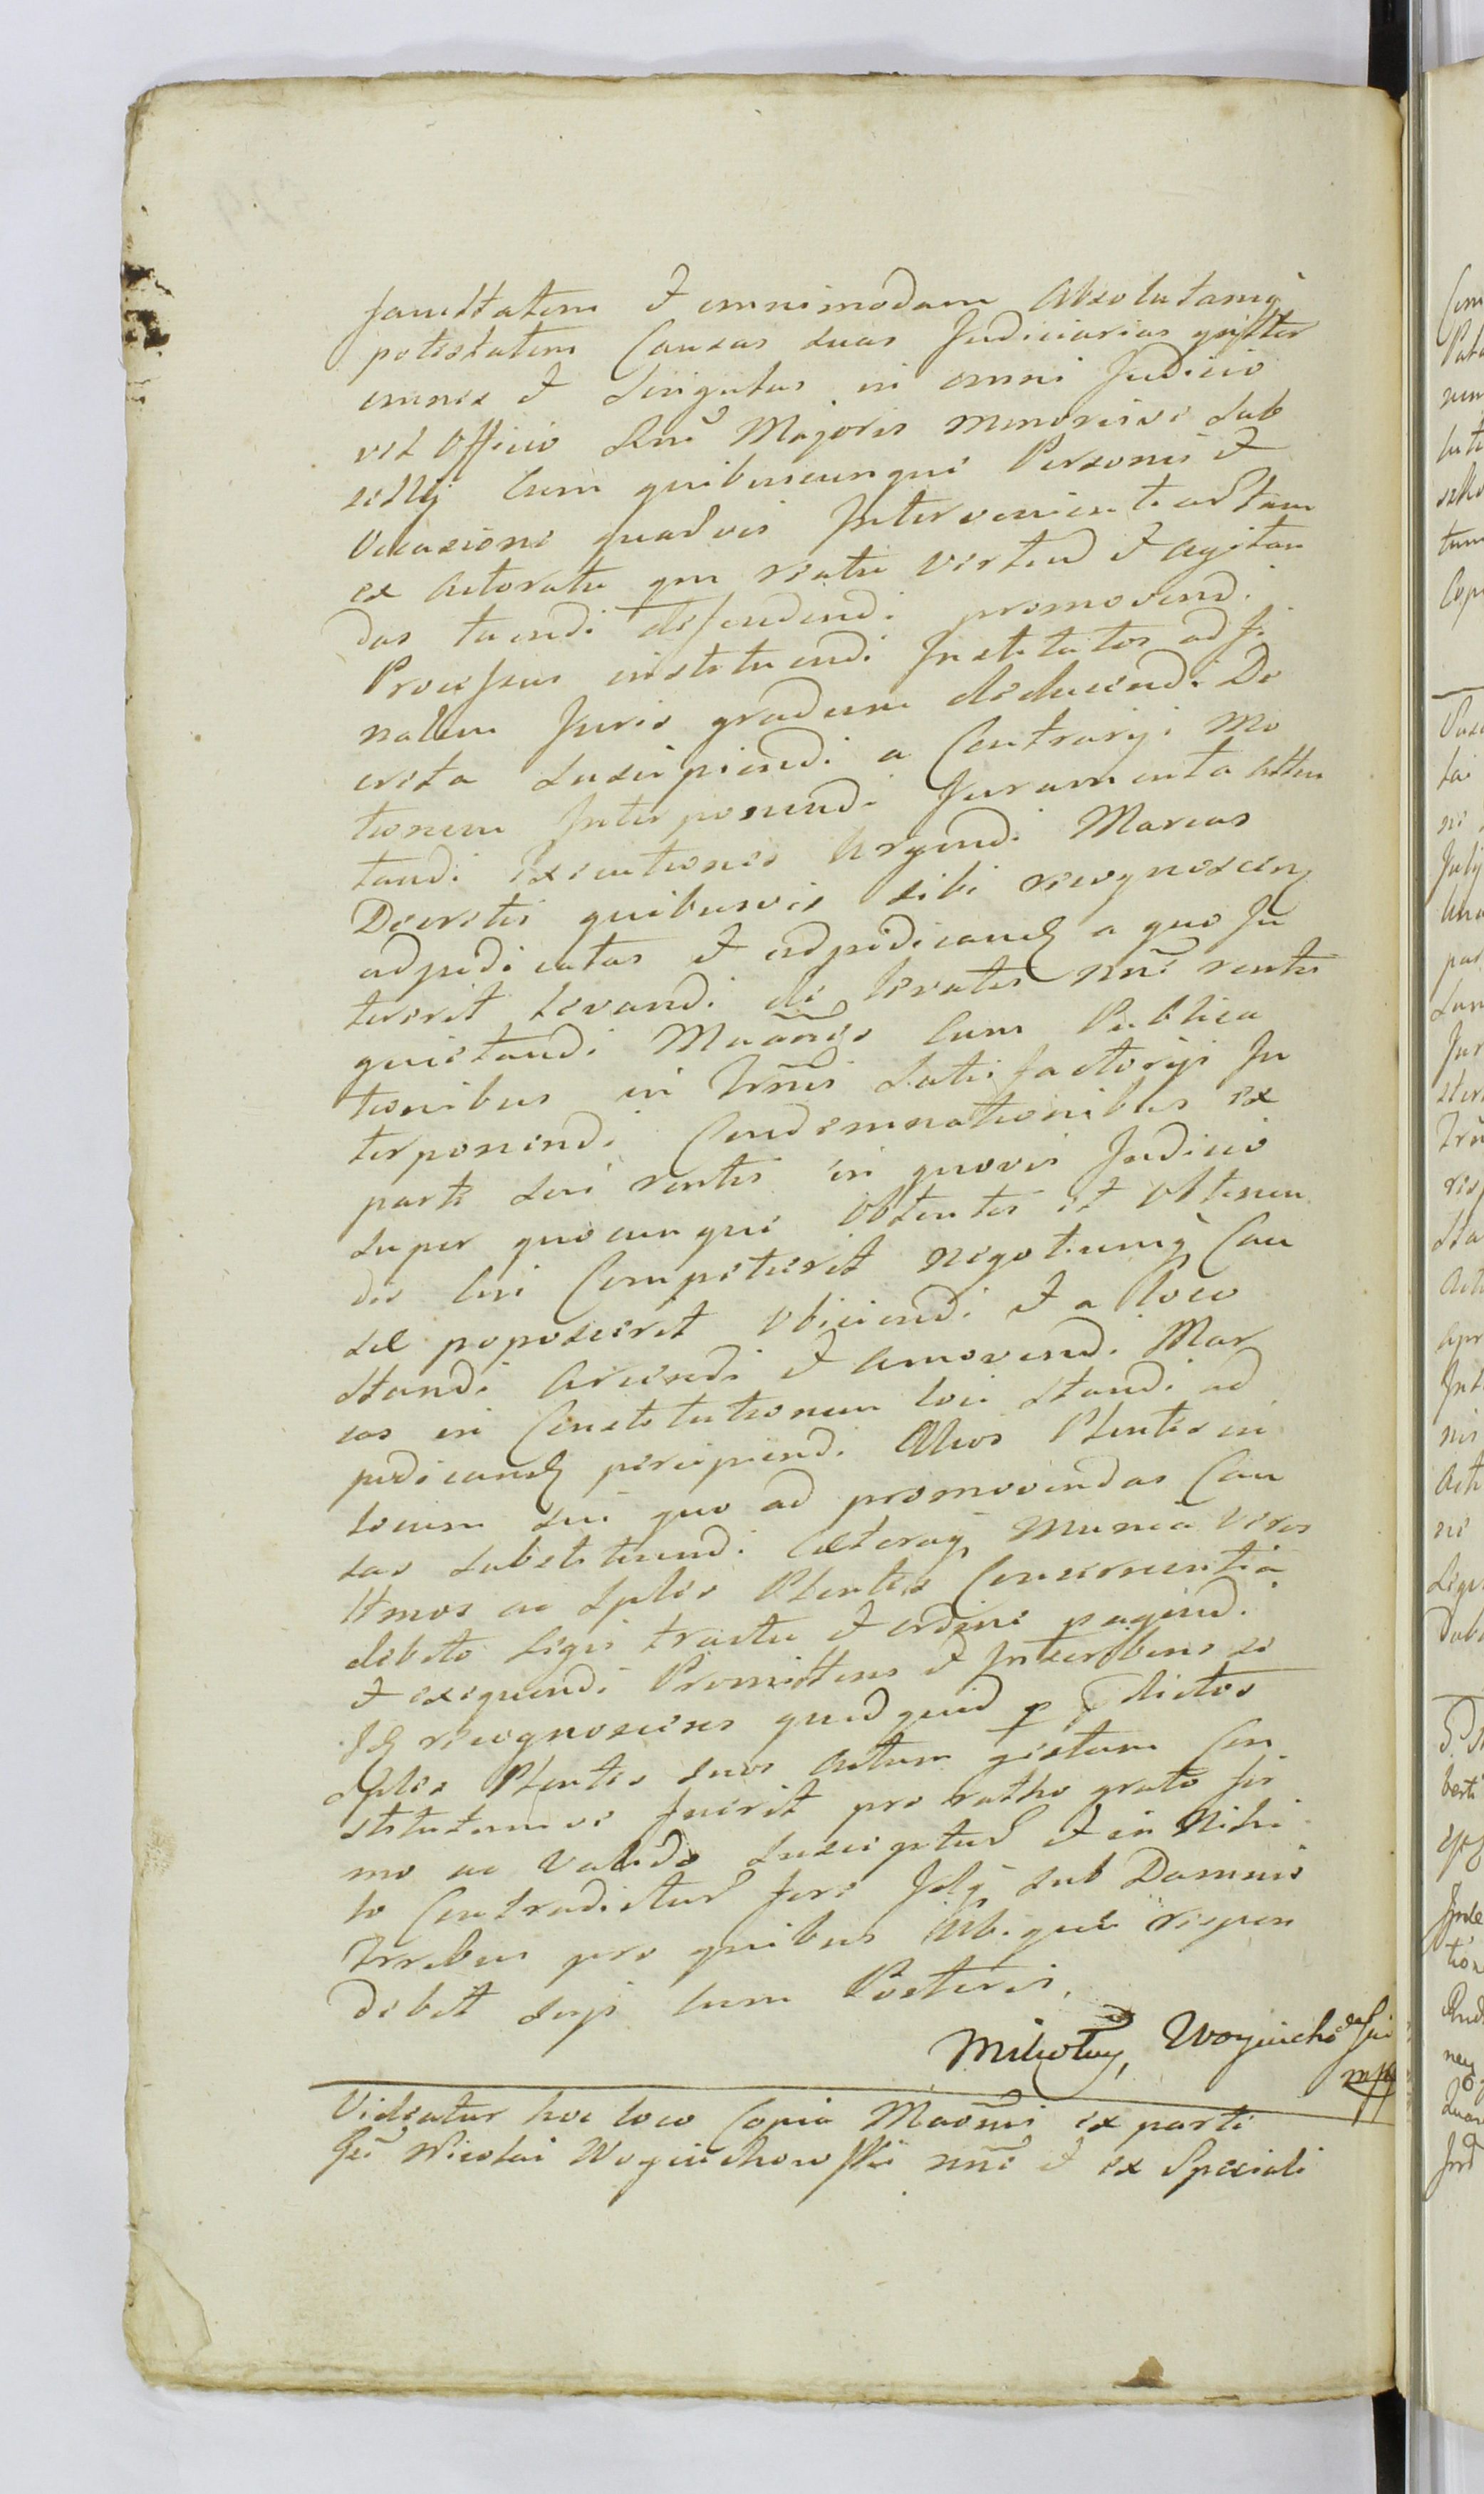 facultatem et omnimodam Absolutamq
potestatem Causas suas Judiciarias gnliter
omnes et singulas in omni Judicio
vel Officio Rni Majoris minorisve sub
sellij Cum quibuscunque Personis et
Occasione quadvis Intervenient ad tam
ex Actoratu qm reatu vertend et agitan
das tuendi defendendi promovend.
Processus instituendi Institutos ad fi
nalem Juris gradum deducendi De
creta suscipiendi a Contrarijs Mo
tionem Interponendi Juramenta Atten
tandi Executiones Urgendi Marcas
Decretis quibusvis sibi recognoscen
adjudicatas et adjudicand a quo In
tererit levandi de levatis nne rentis
quietandi Maones Cum Publica
tionibus in Trnis Satisfactorijs In
terponendi Condemnationibus ex
parte sui rentis in quovis Judicio
super quocunque obtentis et obtinen
dis Cui Competierit negotiumq Cau
sae poposcerit Obiiciendi et a loco
standi Arcendi et Amovendi Mar
cas in Constitutionem loci standi ad
judicand percipiendi Alios Plentes in
locum sui quo ad promovendas Cau
sas substituendi Caeteraq Munia Veros
ltmos ac Sples Plentes Concernentia
debito Legis tractu et ordine peragend.
et exequendi Promittens et Inscribens se
Id recognoscens quidquid p Pdictos
Sples Plentes suos Actum gestum Con
stitutumve fuerit pro ratho grato fir
mo ac Valido Suscepturu et in Nihi
lo Contradicturu fore Idq sub Damnis
Trrebus pro quibus Ubique respon
debit Suis cum Posteris.
Mikołay Woyciechowski
mpp
Videatur hoc loco Copia Maonis ex parte
Gsi Nicolai Woyciechowski nne et ex Speciali